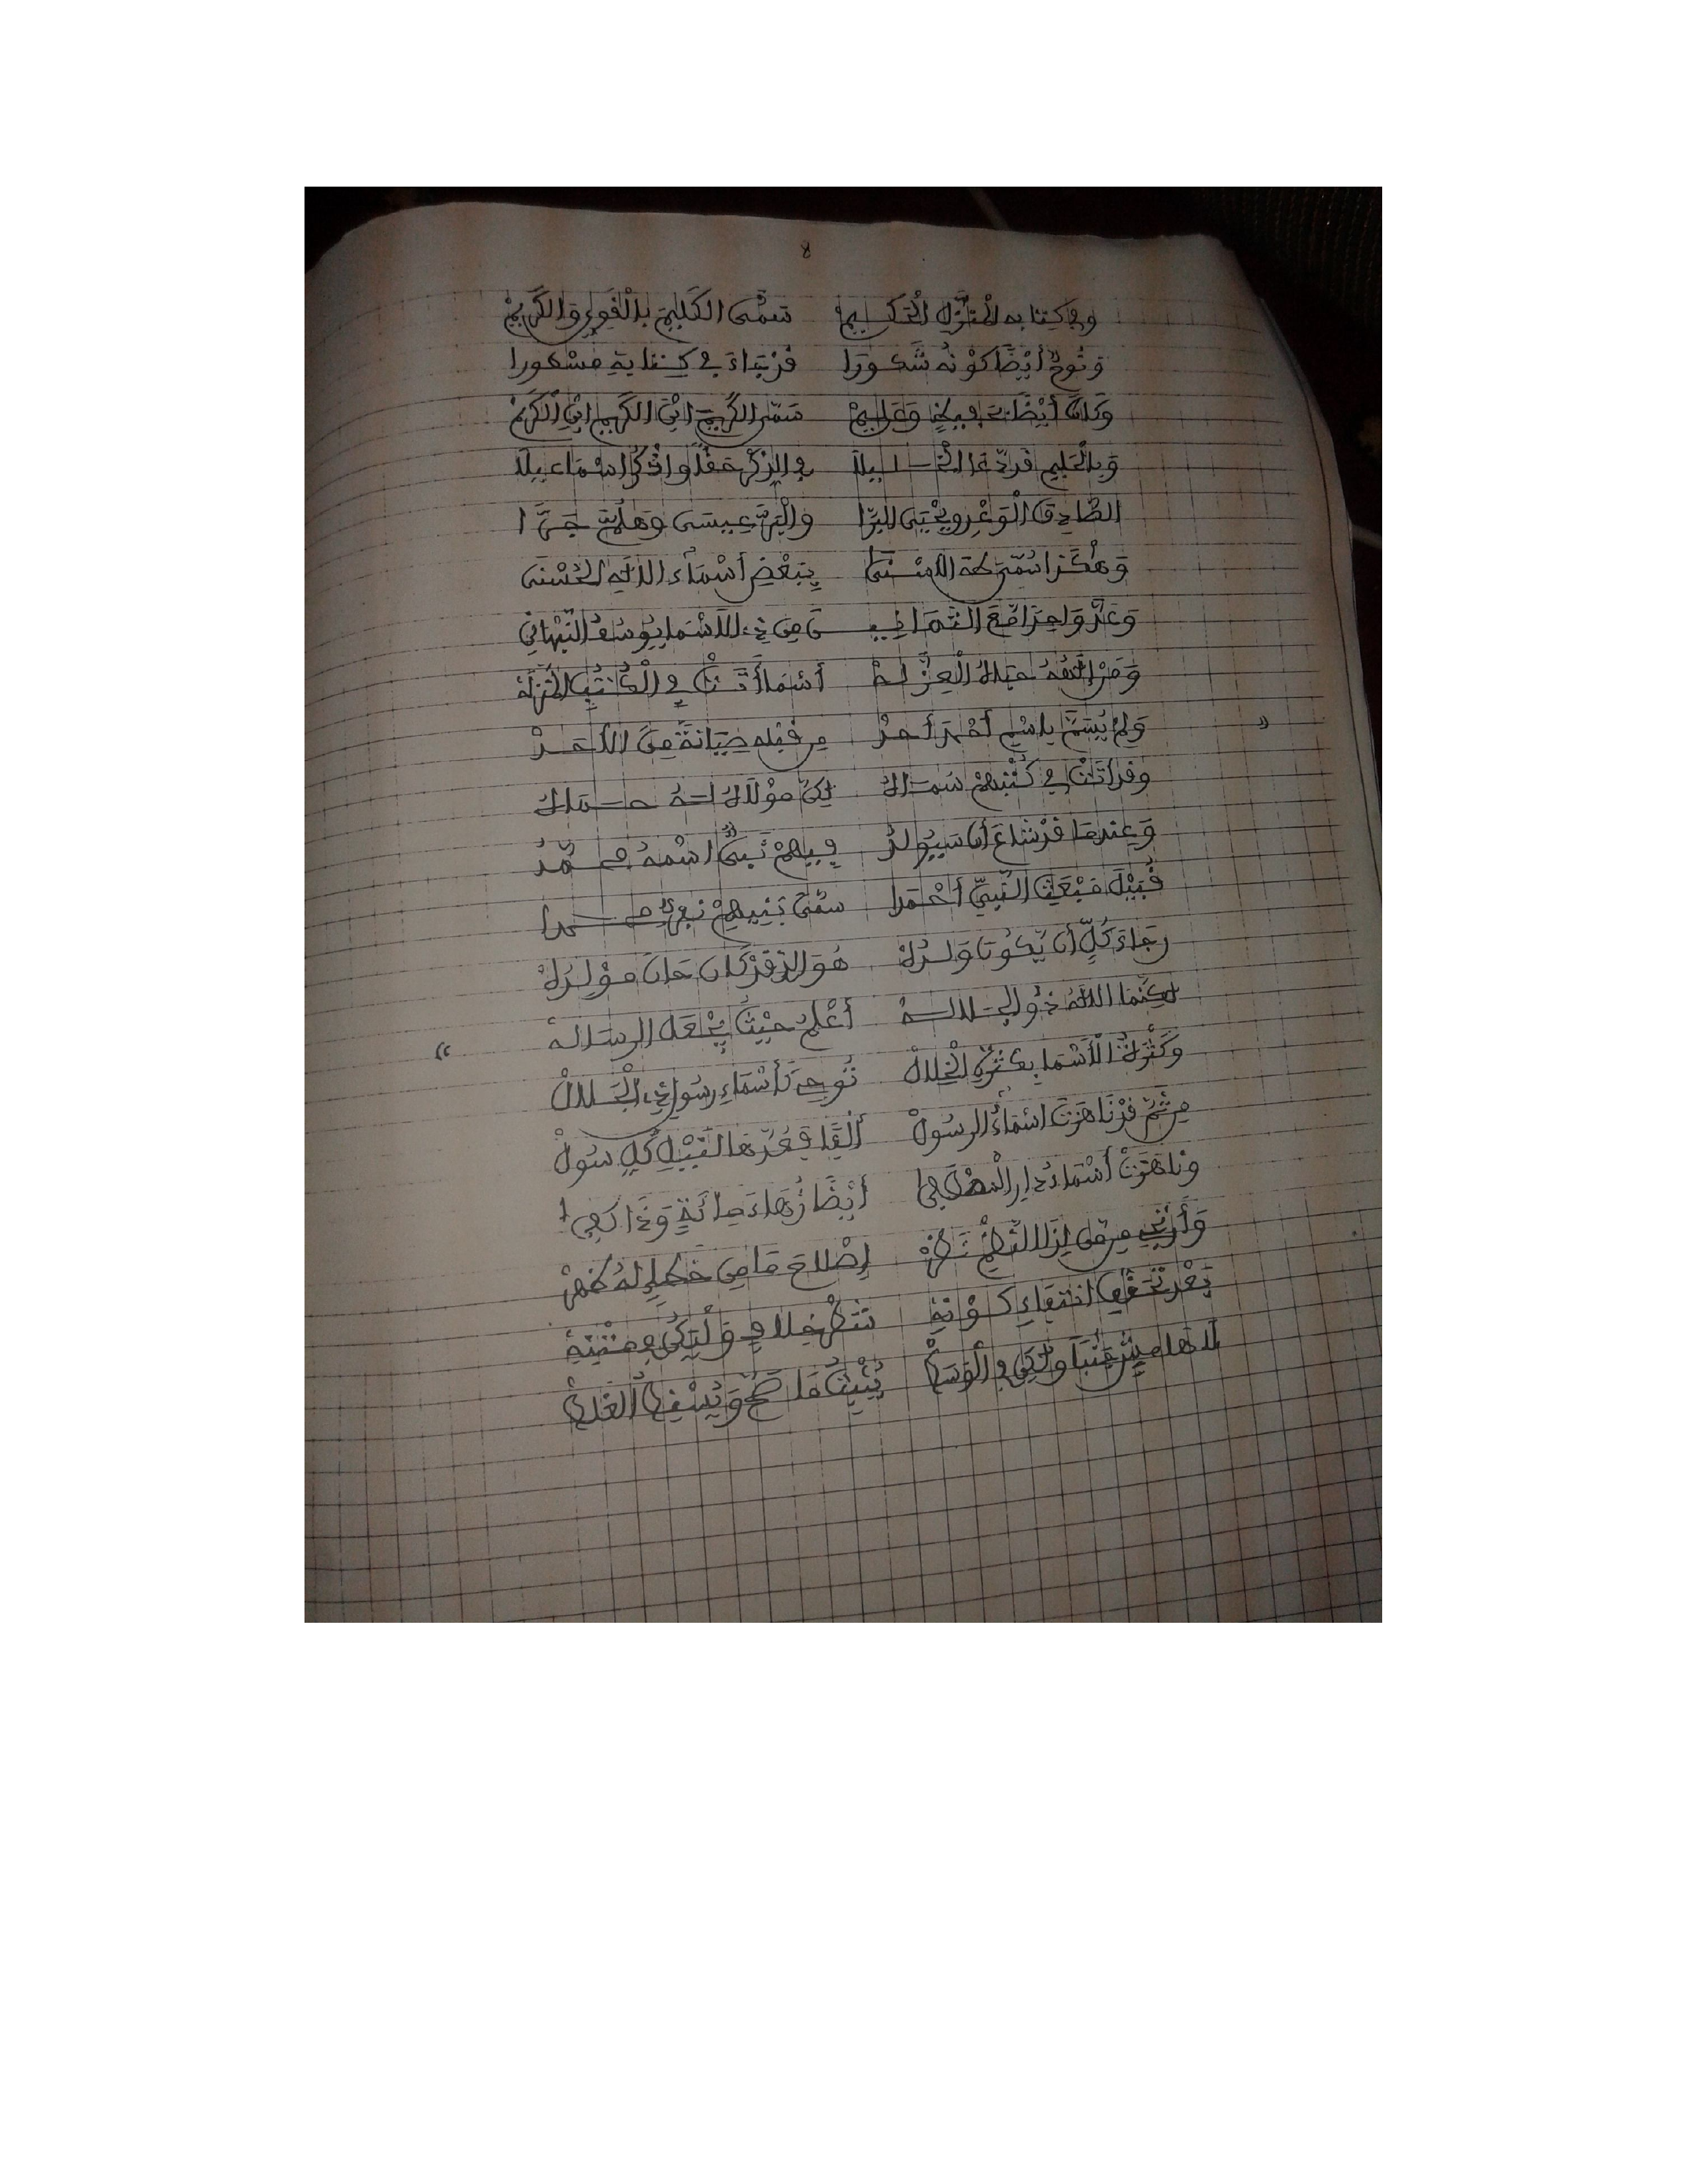 8
وفي كتابه المنزل الحكيم سمى الكليم بالقوي والكريم
ونوح أيضا كونه شكورا قد جاء في كتابه مسطورا
وكان أيضا بحفيظ وعليم سمى الكريم ابن الكريم ابن الكريم
وبالحليم قد دعا الخليلا في الذكر حقا واذكر اسماعيلا
الصادق الوعد ويحيى البرا والبر عيسى وهلمَّ جرَّا
وهكذا سمى طه الأسنى ببعض أسماء الاله الحسنى
وعد واحدا مع الثمانين من ذي الأسما يوسف النبهاني
ومزالفه حباك العز له أسما أتت في الكتب المنزله
ولم يسم باسم أحمد أحد من قبله صيانة من الأحد
وقد أتت في كتبهم سماك لكن مولاك له حماك
وعندما قد شاع أن سيولد فيهم نبي اسمه محمد
قبيل مبعث النبي أحمدا سمى بنيهم نفر محمدا
رجاء كل أن يكون ولدك هو الذ قد كان حان مولدك
لكنما الله ذو الجلاله أعلم حيث يجعل الرساله
وكثرت الأسما بكثرة الخلال توجد أسماء رسول ذي الجلال
من ثم قد ناهزت اسماء الرسول ألفا فعدها لنيل كل سول
وناهزت أسماء دار المصطفى أيضا زهاء مائة وذا كفى
وأرتجي من لذا النظم نظر إصلاح ما من خطإ له ظهر
بعد تحقق انتفاء كونه نظر خلاف ولتكن في متنه
لا هامش عنبا ولكن في الوسط يثبت ما صح ويسقط الغلط